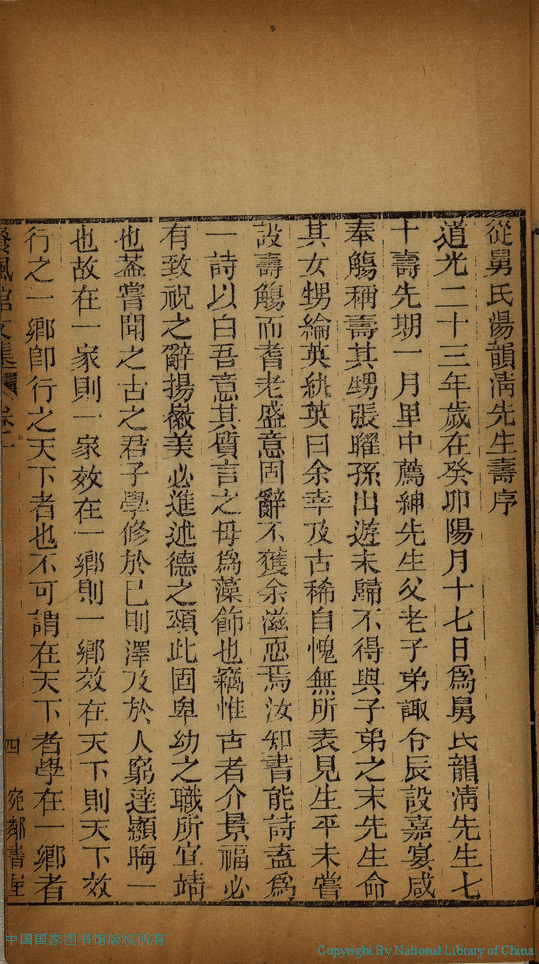 從舅氏湯韻清先生壽序
道光二十三年歲在癸卯陽月十七日爲舅氏韻清先生七
十壽先期一月里中薦紳先生父老子弟諏令辰設嘉宴咸
奉觴稱壽其甥張曜孫出遊未歸不得與子弟之末先生命
其女甥綸英紈英曰余幸及古稀自愧無所表見生平未嘗
設壽觴而耆老盛意固辭不獲余滋恧焉汝知書能詩盍爲
一詩以白吾意其質言之毋爲藻飾也竊惟古者介景福必
有致祝之辭揚徽美必進述德之頌此固卑幼之職所宜靖
也葢嘗聞之古之君子學修於己則澤及於人窮達顯晦一
也故在一家則一家效在一鄉則一鄉效在天下則天下效
行之一鄉卽行之天下者也不可謂在天下者學在一鄉者
餐楓館文集 四 宛鄰書屋
中国国家图书馆版权所有
Copyright By National Library of China